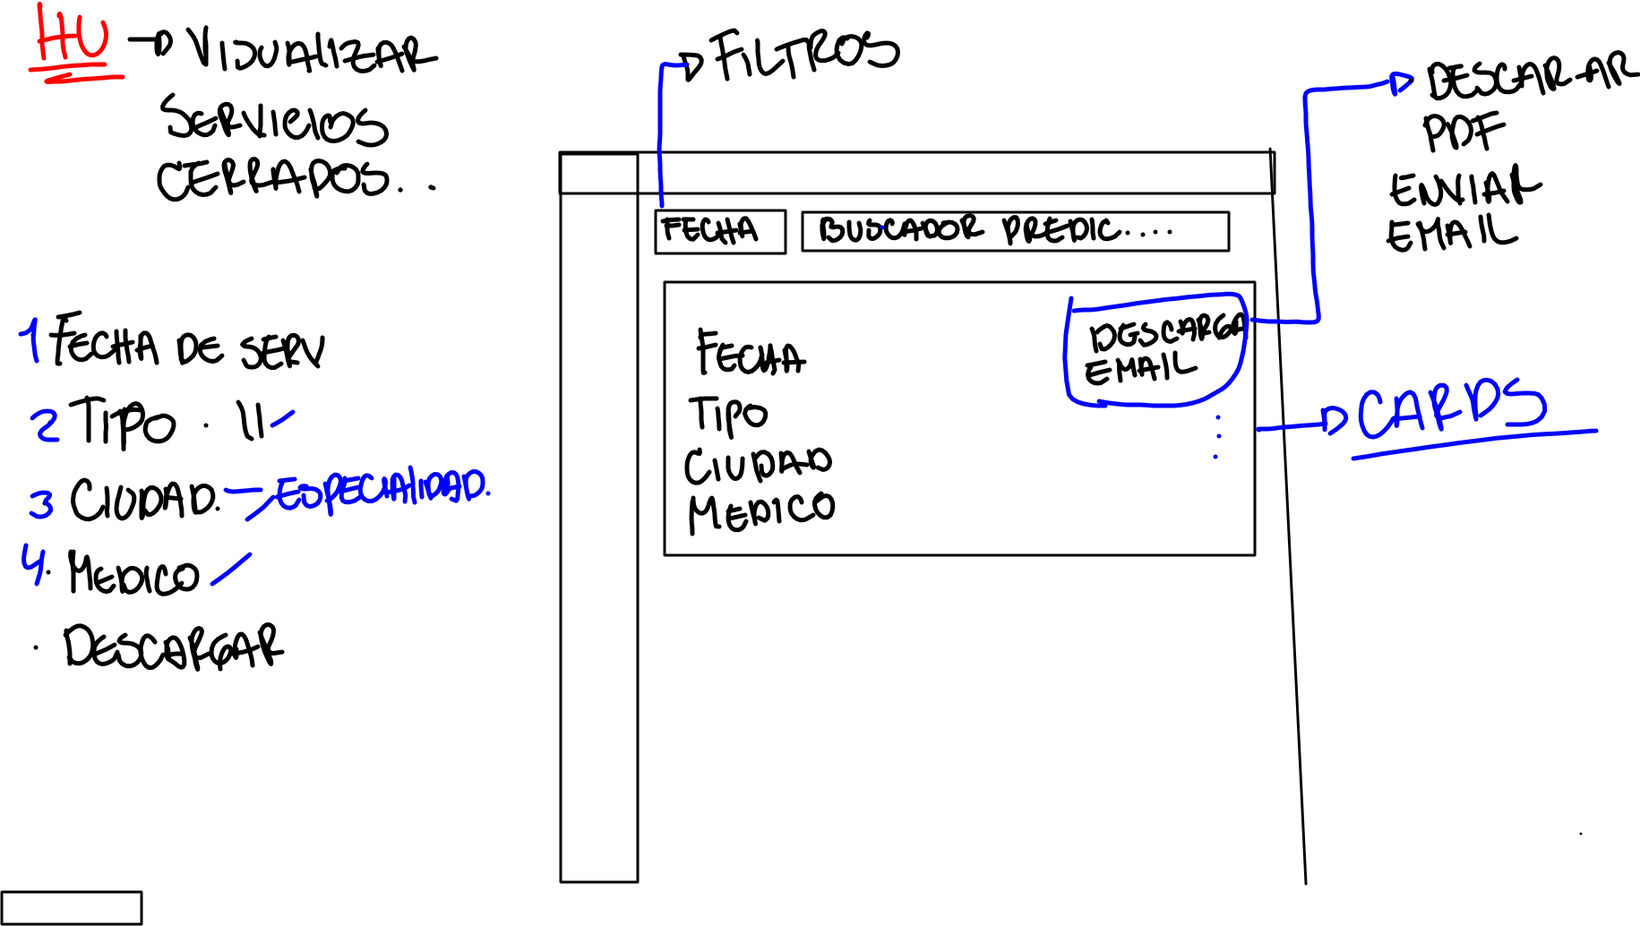 HU → VISUALIZAR
SERVICIOS
CERRADOS...
1 FECHA DE SERV
2 TIPO · 11
3 CIUDAD. ESPECIALIDAD.
4. MEDICO
· DESCARGAR
FILTROS
FECHA
BUSCADOR PREDIC....
FECHA
TIPO
CIUDAD
MEDICO
DESCARGA
EMAIL
DESCAR-AR
PDF
ENVIAR
EMAIL
CARDS